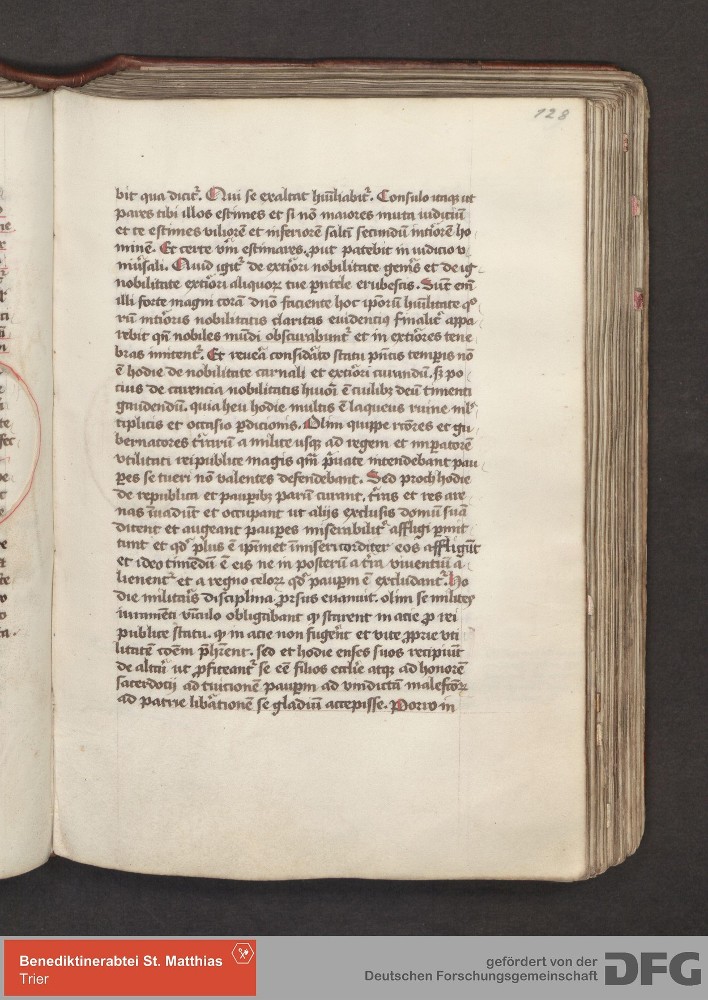 128
bit qua dicit᷑. Qui se exaltat hūiliabit᷑. Consulo itaqꝫ ut
pares tibi illos estimes et si nō maiores muta iudiciū
et te estimes viliorē et inferiorē saltī secundū int̕iorē ho
minē. Et certe v̄m estimares, put patebit in iudicio v
niu̕sali. Quid igit᷑ de ext̕iori nobilitate gen̕is et de ig
nobilitate ext̕iori aliquoꝝ tue pntele erubescis. Sūt em̄
illi forte magni corā dn̄o faciente hoc ipoꝝ hūilitate qͦ
rū int̕ioris nobilitatis claritas euidenciꝰ f̕inalit᷑ appa
rebit qn̄ nobiles mūdi obscurabunt᷑ et in ext̕iores tene
bras mittent᷑. Et reuera consid̕ato statu pn̄tis temp̱is nō
ē hodie de nobilitate carnali et ext̕iori curandū. sꝫ po
cius de carencia nobilitatis hui̕ōi ē cuilibꝫ deū timenti
gaudendū. quia heu hodie multis ē laqueus ruine ml̕
tiplicis et occasio p̱dicionis. Olim quippe rc̄ores et gu
bernatores t̕rarū a milite usqꝫ ad regem et imp̱atorē
vtilitati reipublice magis qm̄ p̕uate intendebant pau
p̱es se tueri nō valentes defendebant. Sed proch hodie
de republica et paup̱ibꝫ parū curant, t̕ras et res alie
nas īuadūt et occupant ut alijs exclusis domū suā
ditent et augeant paup̱es miserabilit᷑ affligi p̱mit
tunt et qd̕ plus ē ip̄imet īmisericorditer eos affligūt
et ideo timendū ē eis ne in posterū a t̕ra viuentiū a
lienent᷑ et a regno celoꝝ qd̕ paup̱m ē excludant᷑. Ho
die militaris disciplina p̱rsus euanuit. olim se milites
iuramēti vīculo obligabant qꝫ starent in acie ꝓ rei
publice statu. qꝫ in acie non fug̕ent et vite ꝓprie vti
litatē cōem p̄h̕rent. sed et hodie enses suos recipiūt
de altari ut ꝓfiteant᷑ se eē filios eccl̕ie atqꝫ ad honorē
sacerdocij ad tuicionē paup̱m ad vindictā malefc̄oꝝ
ad patrie lib̕ationē se gladiū accepisse. Porro in
Benediktinerabtei St. Matthias
Trier
gefördert von der
Deutschen Forschungsgemeinschaft
DFG